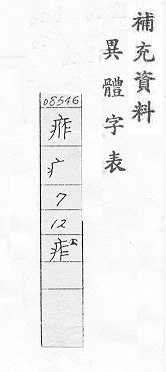 補充資料
異體字表
08546
痄
疒
7
12
痄